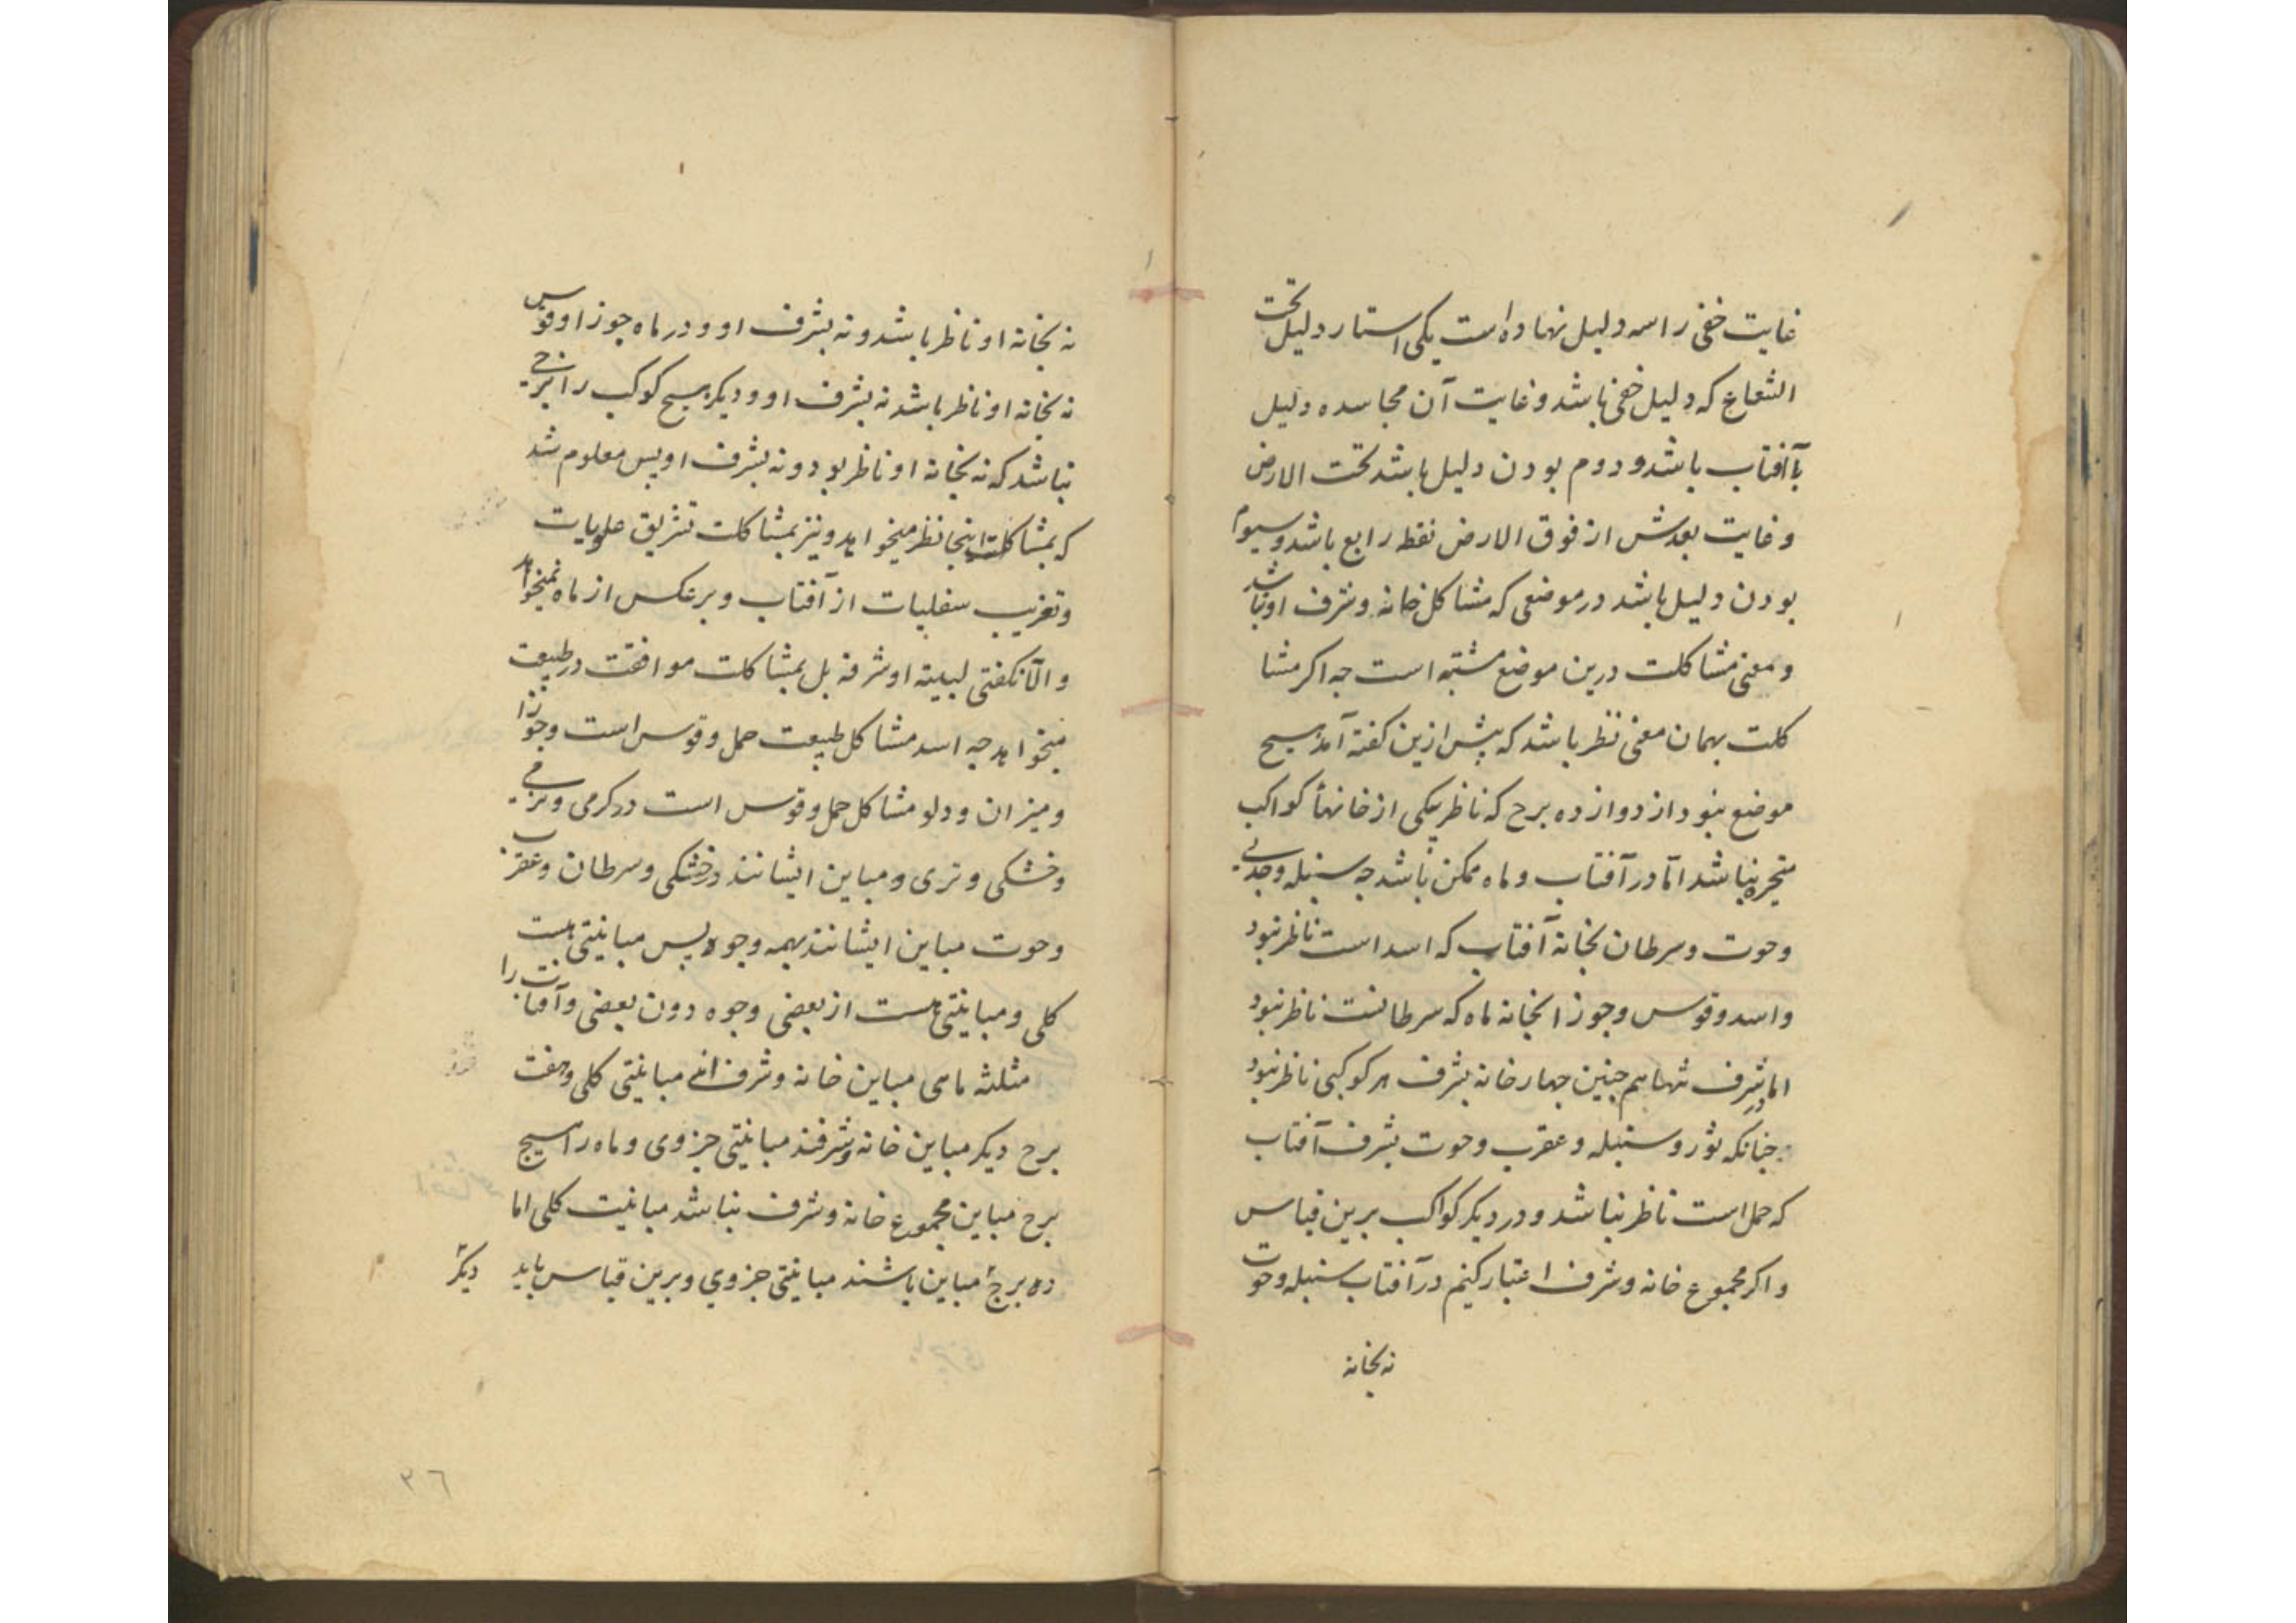 غایت خفی را سه دلیل نهاده است یکی استتار دلیل تحت
الشعاع که دلیل خفی باشد و غایت آن مجاسده دلیل
باآفتاب باشد و دوم بودن دلیل باشد تحت الارض
و غایت بعدش از فوق الارض نقطه رابع باشد و سیوم
بودن دلیل باشد در موضعی که مشاکل خانه و شرف او نباشد
و معنی مشاکلت درین موضع مشتبه است جه اکر مشا
کلت بهمان معنی نظر باشد که پیش ازین کفته آمد هیچ
موضع نبود از دوازده برج که ناظر بیکی از خانهاء کواکب
متحیره نباشد امّا در آفتاب و ماه ممکن باشد جه سنبله و جدی
و حوت و سرطان بخانه آفتاب که اسد است ناظر نبود
و اسد و قوس و جوزا بخانه ماه که سرطانست ناظر نبود
اما در شرف تنها هم جنین جهار خانه بشرف هر کوکبی ناظر نبود
جنانکه ثور و سنبله و عقرب و حوت بشرف آفتاب
که حمل است ناظر نباشد و در دیکر کواکب برین قیاس
و اکر مجموع خانه و شرف اعتبار کنیم در آفتاب سنبله و حوت
نه بخانه
نه بخانه او ناظر باشد و نه بشرف او و در ماه جوزا و قوس
نه بخانه او ناظر باشد نه بشرف او و دیکر هیج کوکب را برجی
نباشد که نه بخانه او ناظر بود و نه بشرف او پس معلوم شد
که بمشاکلت اینجا نظر میخواهد و نیز بمشاکلت تشریق علویات
و تغریب سفلیات از آفتاب و برعکس از ماه نمیخواهد
و الّا نکفتی لبیته او شرفه بل بمشاکلت موافقت در طبیعت
میخواهد جه اسد مشاکل طبیعت حمل و قوس است و جوزا
و میزان و دلو مشاکل حمل و قوس است در کرمی و نرمی
و خشکی و تری و مباین ایشانند در خشکی و سرطان و عقرب
و حوت مباین ایشانند بهمه وجوه پس مباینتی هست
کلی و مباینتی هست از بعضی وجوه دون بعضی و آفتاب را
مثلثه مامی مباین خانه و شرف اند مباینتی کلی و هفت
برج دیکر مباین خانه و شرفند مباینتی جزوی و ماه را هیج
برج مباین مجموع خانه و شرف نباشد مباینت کلی اما
ده برج مباین باشند مباینتی جزوی و برین قیاس باید
دیکر
۳٦